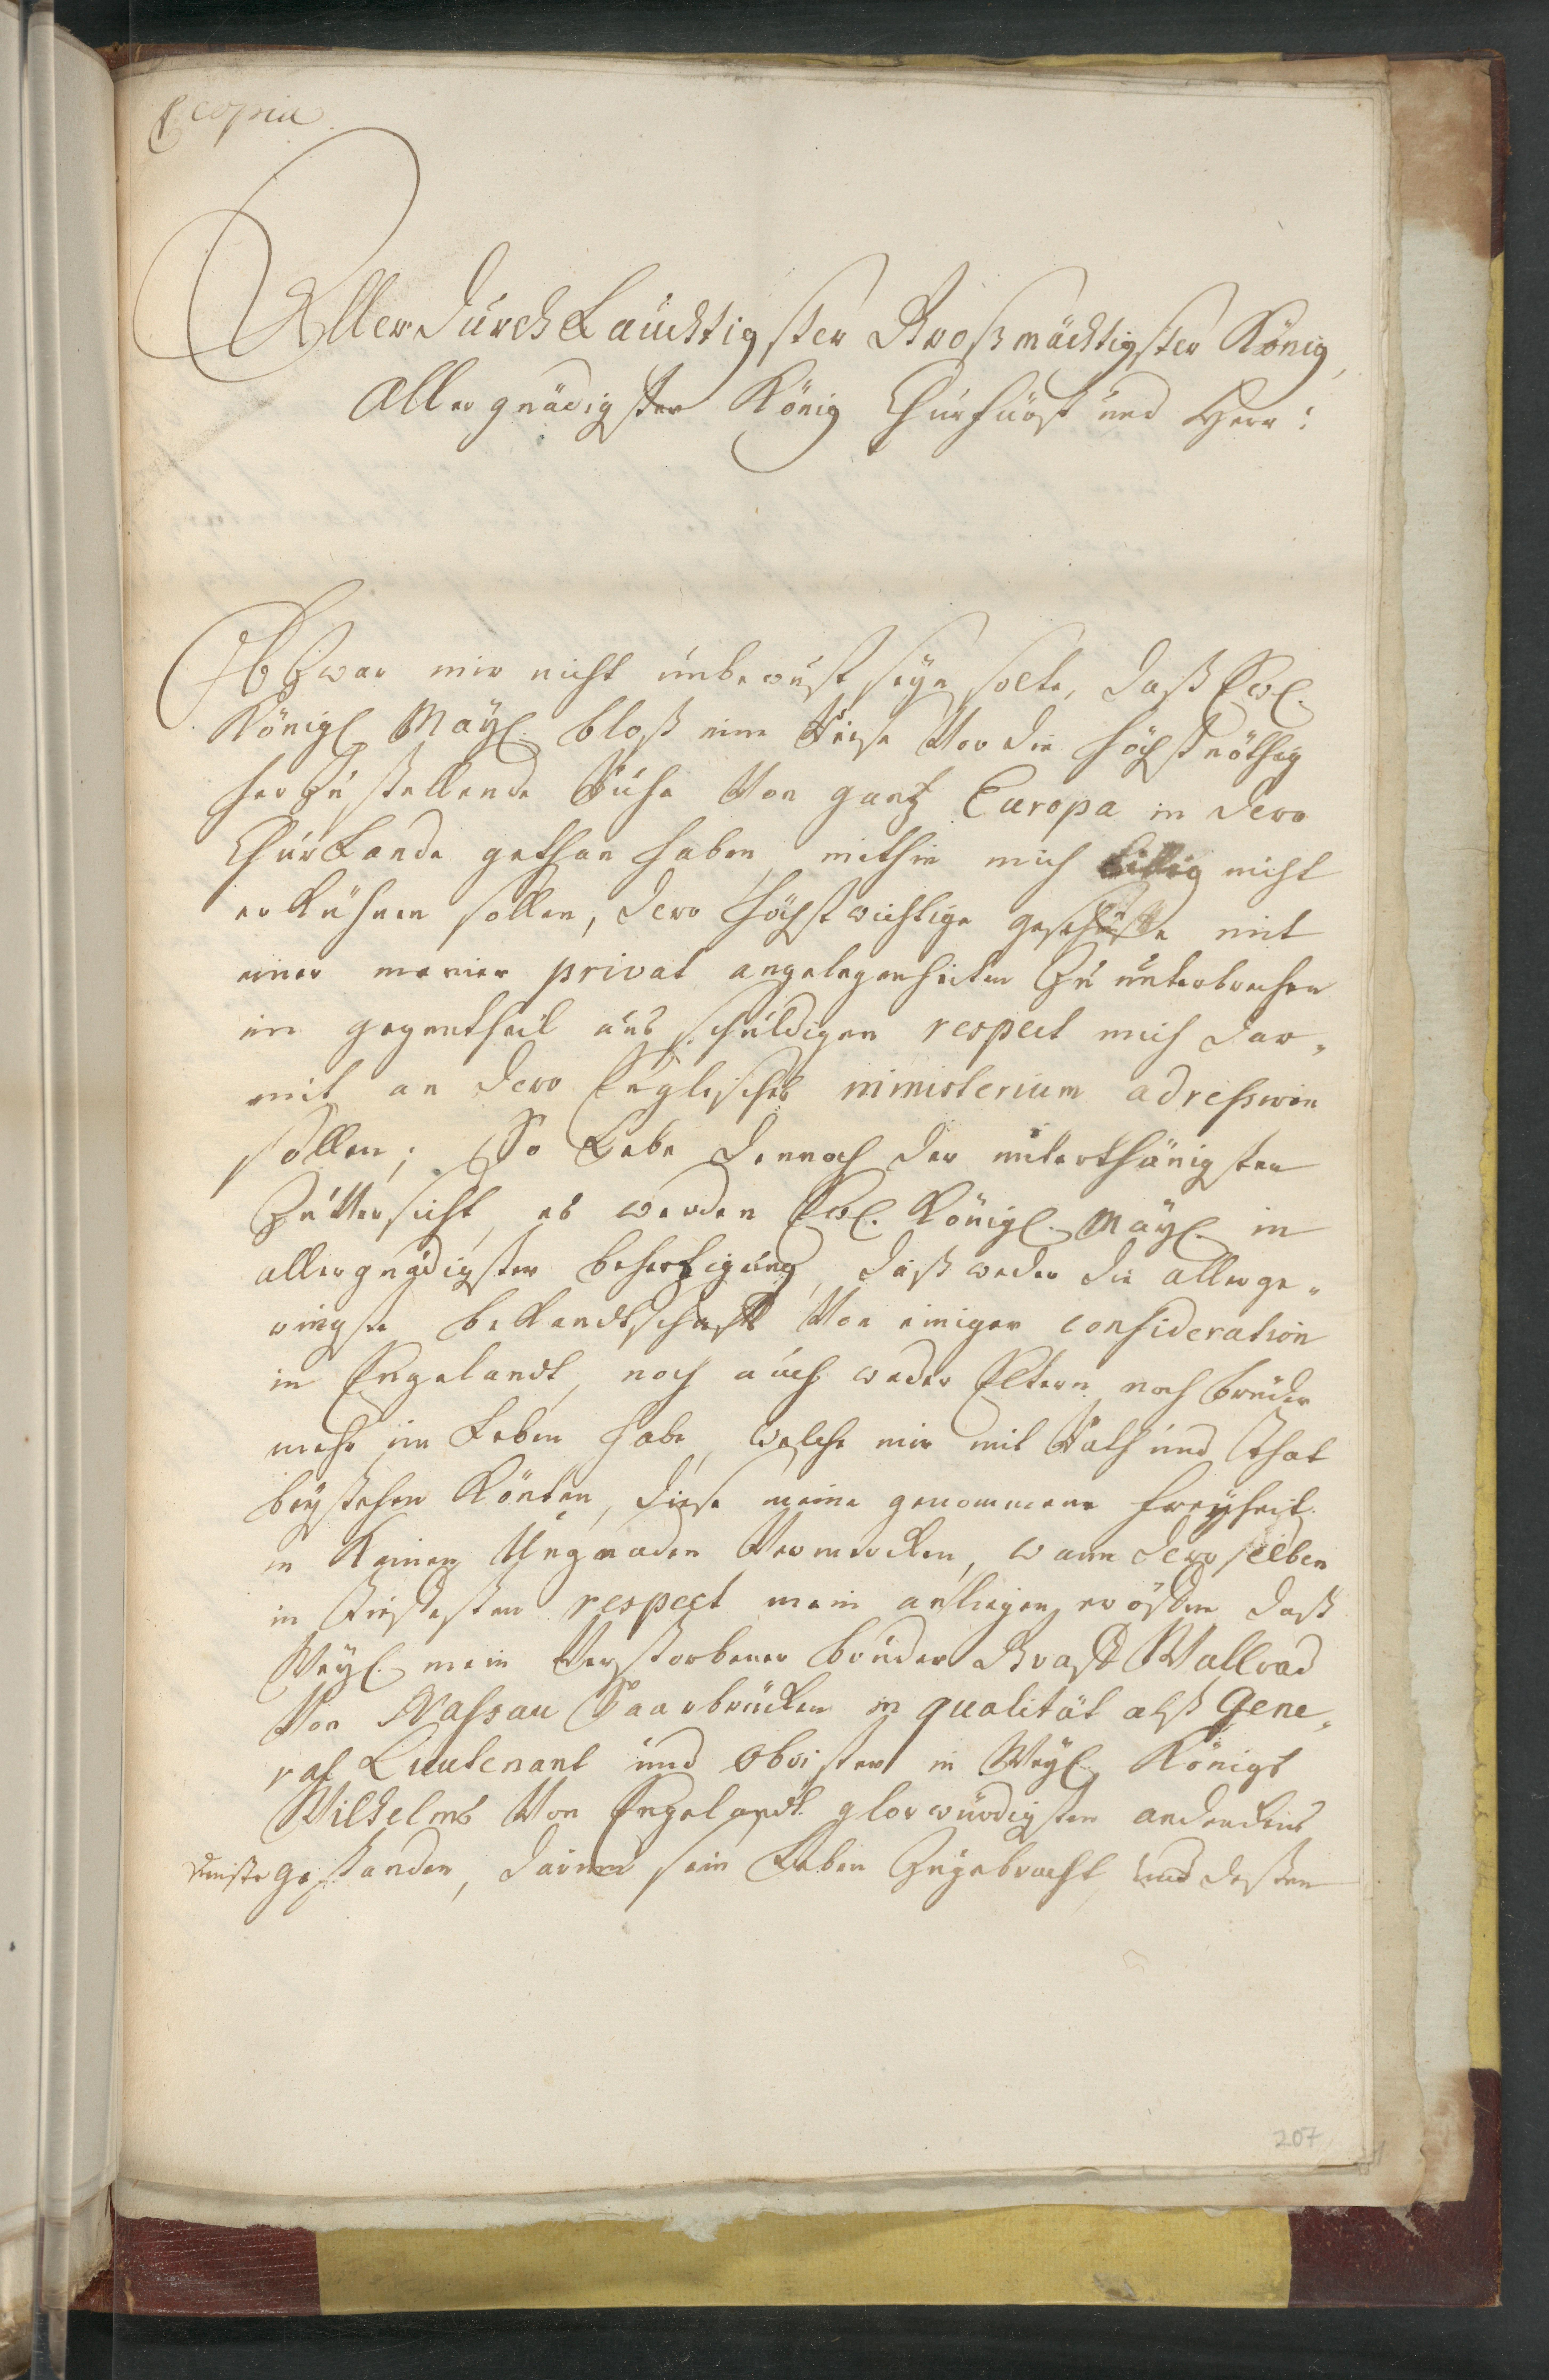 copia
AllerdurchLauchtigster Großmächtigster König,
Allergnädigster König Churfürst und Herr:
Ob Zwar mir nicht unbewust seyn solte, daß Ew.
Königl. May. bloß eine Reise Vor die höchstnöthig
her Zu stellende Ruhe Von gantz Europa in dero
ChurLande gethan haben, mithin mich billig nicht
erkühnen sollen, dero höchst wichtige geschäffte mit
einer meiner privat angelegenheiten Zu unterbrechen
im gegentheil aus schuldigen respect mich dar„
mit an dero Englisches ministerium adressiren
sollen; So Lebe dennoch der unterthänigsten
Zuversicht, es werden Ew. Königl. May. in
allergnädigster behertzigung, daß weder die allerge„
ringste bekandtschafft Von einiger consideration
in Engelandt, noch auch weder Eltern noch brüder
mehr im Leben habe, welche mir mit Rath und That
beystehen Könten, diese meine genommene freyheit
in Keinen Ungnaden Vermercken, wann deroselben
in tiefestem respect mein anliegen eröffne, daß
Weyl. mein Verstorbener bruder Graff Wallrad
Von Nassau Saarbrücken in qualität alß Gene„
ral Lieutenant und Obrister in Weyl. Königs
Wilhelms Von Engelandt glorwürdigsten andenckens
dienste gestanden, darinnen sein Leben Zugebracht, und dessen
207